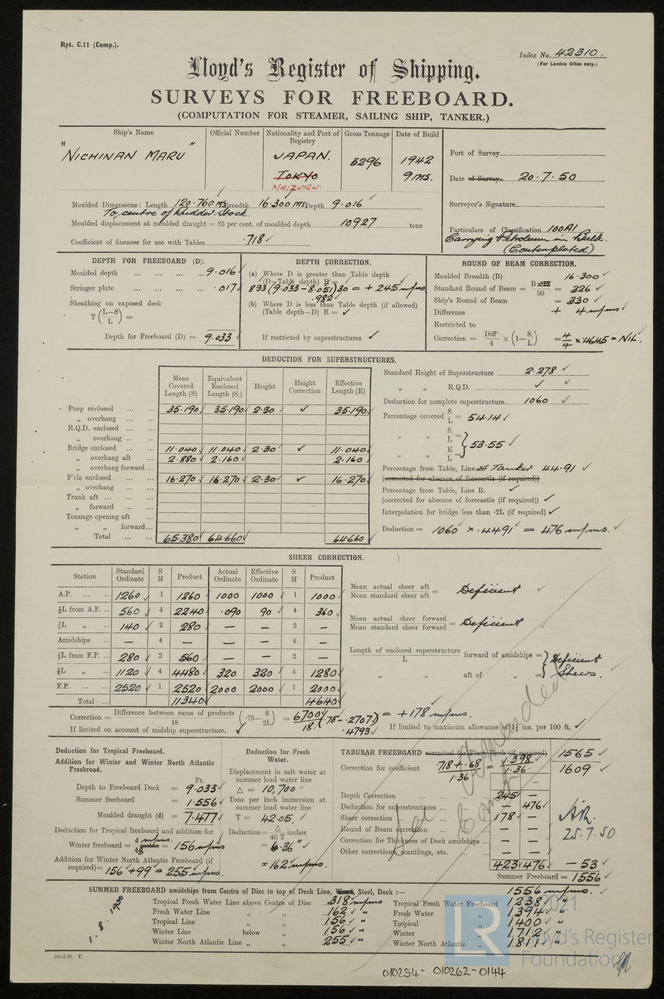 Rpt. C.11 (Comp.).
Index No. 42310.
(For London Office only.)
Lloyd's Register of Shipping.
SURVEYS FOR FREEBOARD.
(COMPUTATION FOR STEAMER, SAILING SHIP, TANKER.)
Ship's Name Official Number Nationality and Port of Registry Gross Tonnage Date of Build
"NICHINAN MARU" JAPAN. 5296 1942
TOKYO 9 MS.
MAIZURU.
Port of Survey
Date of Survey 20.7.50
Surveyor's Signature
Particulars of Classification 100A1
Carrying Petroleum in Bulk.
(Contemplated)
Moulded Dimensions: Length 120.760 MS Breadth 16.300 MS Depth 9.016
To centre of Rudder Stock.
Moulded displacement at moulded draught = 85 per cent. of moulded depth 10927 tons
Coefficient of fineness for use with Tables .718
DEPTH FOR FREEBOARD (D).
Moulded depth 9.016
Stringer plate .017
Sheathing on exposed deck
T (L−S / L) =
Depth for Freeboard (D) = 9.033
DEPTH CORRECTION.
(a) Where D is greater than Table depth
(D−Table depth) R =
833 (9.033 − 8.051) 30 = + 245 m/ms
.982
(b) Where D is less than Table depth (if allowed)
(Table depth−D) R =
If restricted by superstructures
ROUND OF BEAM CORRECTION.
Moulded Breadth (B) 16.300
Standard Round of Beam = B / 50 = 326
Ship's Round of Beam = 330
Difference + 4 m/ms
Restricted to
Correction = Diff / 4 × (1 − S₁ / L) = 4 / 4 × .4645 = NIL.
DEDUCTION FOR SUPERSTRUCTURES.
Mean Covered Length (S) Equivalent Enclosed Length (S₁) Height Height Correction Effective Length (E)
Poop enclosed 35.190 35.190 2.30 35.190
„ overhang
R.Q.D. enclosed
„ overhang
Bridge enclosed 11.040 11.040 2.30 11.040
„ overhang aft 2.880 2.160 2.160
„ overhang forward
F'cle enclosed 16.270 16.270 2.30 16.270
„ overhang
Trunk aft
„ forward
Tonnage opening aft
„ „ forward
Total 65.380 64.660 64.660
Standard Height of Superstructure 2.278
„ „ R.Q.D.
Deduction for complete superstructure 1060
Percentage covered S / L = 54.14
„ „ S₁ / L
„ „ E / L = 53.55
Percentage from Table, Line Tanker 44.91
(corrected for absence of forecastle (if required))
Percentage from Table, Line B.
(corrected for absence of forecastle (if required))
Interpolation for bridge less than ·2L (if required)
Deduction = 1060 × .4491 = 476 m/ms.
SHEER CORRECTION.
Station Standard Ordinate S M Product Actual Ordinate Effective Ordinate S M Product
A.P. 1260 1 1260 1000 1000 1 1000
⅙L from A.P. 560 4 2240 .090 90 4 360
⅓L „ 140 2 280 — — 2 —
Amidships — 4 — — — 4 —
⅓L from F.P. 280 2 560 — — 2 —
⅙L „ 1120 4 4480 320 320 4 1280
F.P. 2520 1 2520 2000 2000 1 2000
Total 11340 4640
Mean actual sheer aft / Mean standard sheer aft = Deficient
Mean actual sheer forward / Mean standard sheer forward = Deficient
Length of enclosed superstructure forward of amidships / L =
„ aft of „ =
Deficient Sheer.
Correction = Difference between sums of products / 18 (·75 − S / 2L) = 6700 / 18 (.75 − .2707) = + 178 m/ms.
.4793
If limited on account of midship superstructure.
If limited to maximum allowance of 1½ ins. per 100 ft.
Deduction for Tropical Freeboard.
Addition for Winter and Winter North Atlantic Freeboard.
Ft.
Depth to Freeboard Deck = 9.033
Summer freeboard = 1.556
Moulded draught (d) = 7.477
Deduction for Tropical freeboard and addition for
Winter freeboard = d m/ms / 48 = 156 m/ms
Addition for Winter North Atlantic Freeboard (if
required) = 156 + 99 = 255 m/ms.
Deduction for Fresh Water.
Displacement in salt water at
summer load water line
Δ = 10,700
Tons per inch immersion at
summer load water line
T = 42.05
Deduction = Δ / 40 T inches
= 6.36"
= 162 m/ms.
TABULAR FREEBOARD corrected for Flush Deck (if required) 1565
Correction for coefficient .718 + .68 / 1.36 = 1.398 / 1.36 1609
Depth Correction 245 —
Deduction for superstructures — 476
Sheer correction 178 —
Round of Beam correction — —
Correction for Thickness of Deck amidships — —
Other corrections, scantlings, etc. — —
423 476 − 53
Summer Freeboard = 1556
25.7.50
SUMMER FREEBOARD amidships from Centre of Disc to top of Deck Line, Wood, Steel, Deck :— 1556 m/ms.
Tropical Fresh Water Line above Centre of Disc 318 m/ms Tropical Fresh Water Freeboard 1238 „
Fresh Water Line „ „ 162 „ Fresh Water „ 1394 „
Tropical Line „ „ 156 „ Tropical „ 1400 „
Winter Line below „ 156 „ Winter „ 1712 „
Winter North Atlantic Line „ „ 255 „ Winter North Atlantic „ 1811 „
1.8.1950
© 2021
LR
Lloyd's Register
Foundation
010254- 010262-0144